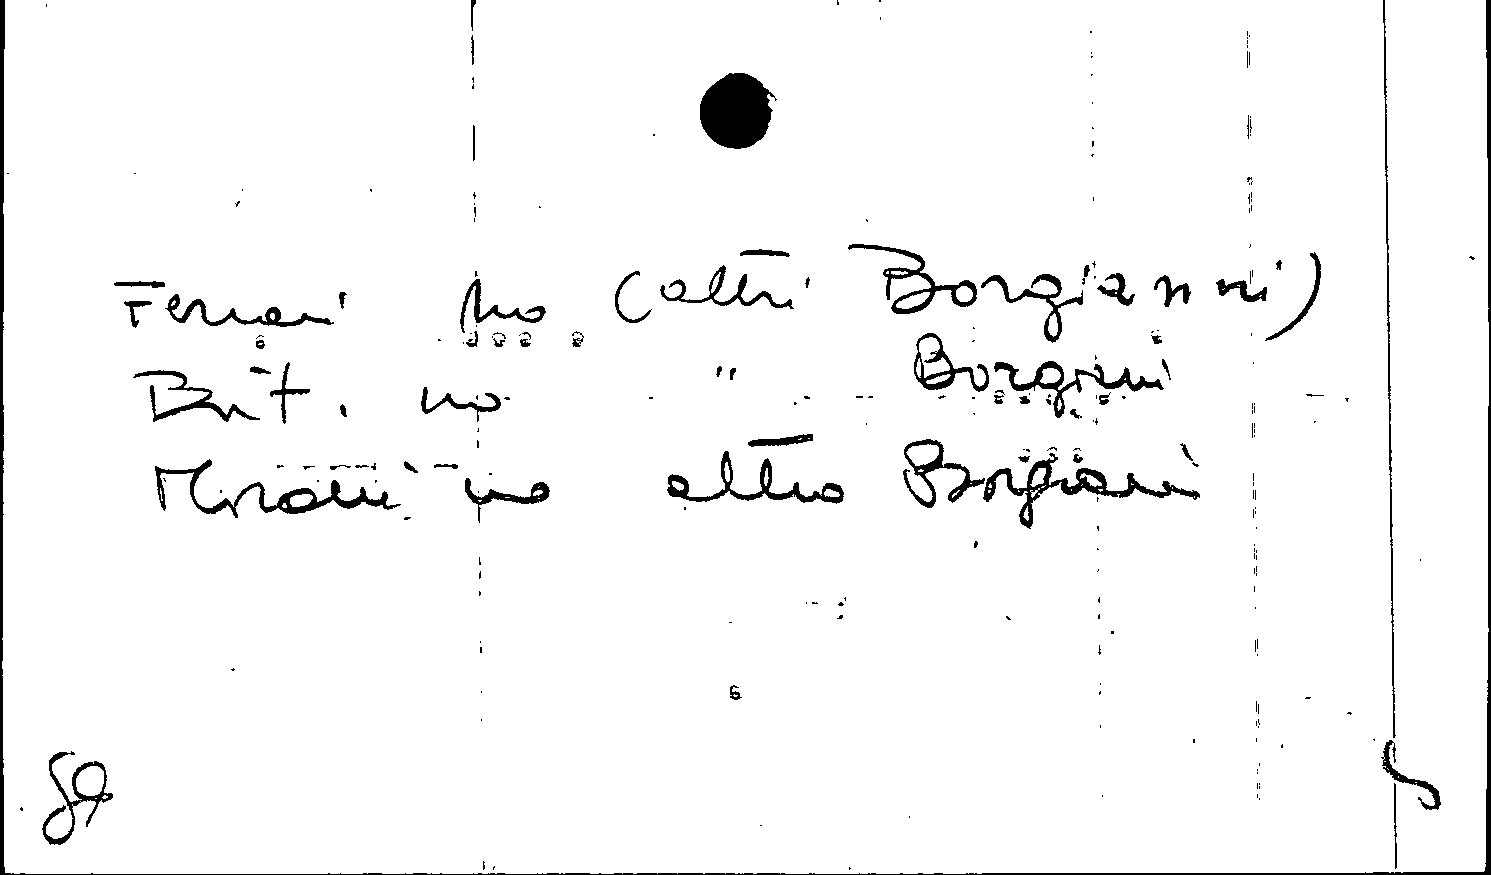 Ferrari no (altri Borgianni)
Brit. no " Borgiani
Morani no altro Borgiani
89